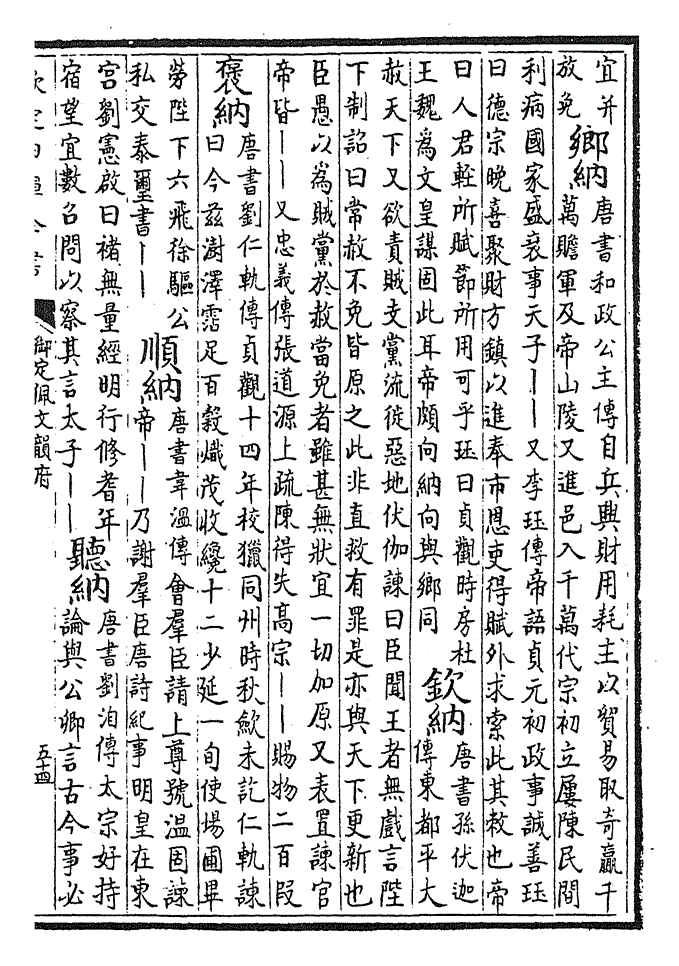 宜并
放免
鄉納
唐書和政公主傳自兵興財用耗主以貿易取奇贏千
萬贍軍及帝山陵又進邑入千萬代宗初立屢陳民間
利病國家盛衰事天子丨丨又李珏傳帝語貞元初政事誠善珏
曰德宗晚喜聚財方鎮以進奉市恩吏得賦外求索此其敝也帝
曰人君輕所賦節所用可乎珏曰貞觀時房杜
王魏爲文皇謀固此耳帝頗向納向與鄉同
欽納
唐書孫伏迦
傳東都平大
赦天下又欲責賊支黨流徙惡地伏伽諫曰臣聞王者無戲言陛
下制詔曰常赦不免皆原之此非直赦有罪是亦與天下更新也
臣愚以為賊黨於赦當免者雖甚無狀宜一切加原又表置諫官
帝皆丨丨又忠義傳張道源上疏陳得失高宗丨丨賜物二百段
褒納
唐書劉仁軌傳貞觀十四年校獵同州時秋歛未訖仁軌諫
曰今茲澍澤霑足百穀熾茂收纔十二少延一旬使場圃畢
勞陛下六飛徐驅公
私交泰璽書丨丨
順納
唐書韋溫傳會羣臣請上尊號溫固諫
帝丨丨乃謝羣臣唐詩紀事明皇在東
宮劉憲啟曰褚無量經明行修耆年
宿望宜數召問以察其言太子丨丨
聽納
唐書劉洎傳太宗好持
論與公卿言古今事必
欽定四庫全書
御定佩文韻府
五十四